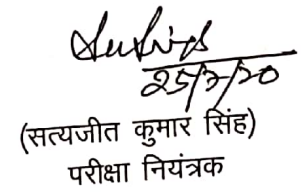 25/7/20
(सत्यजीत कुमार सिंह)
परीक्षा नियंत्रक